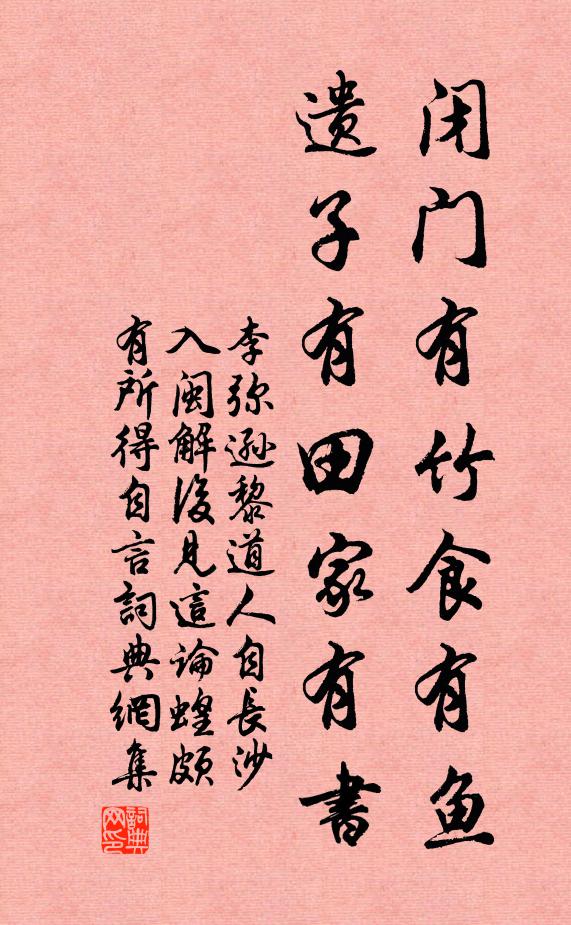 闭门有竹食有鱼
遗子有田家有書
李弥遜黎道人自長沙
入闽解後見這論蝗頗
有所得自言詞典網集
詞典
网印